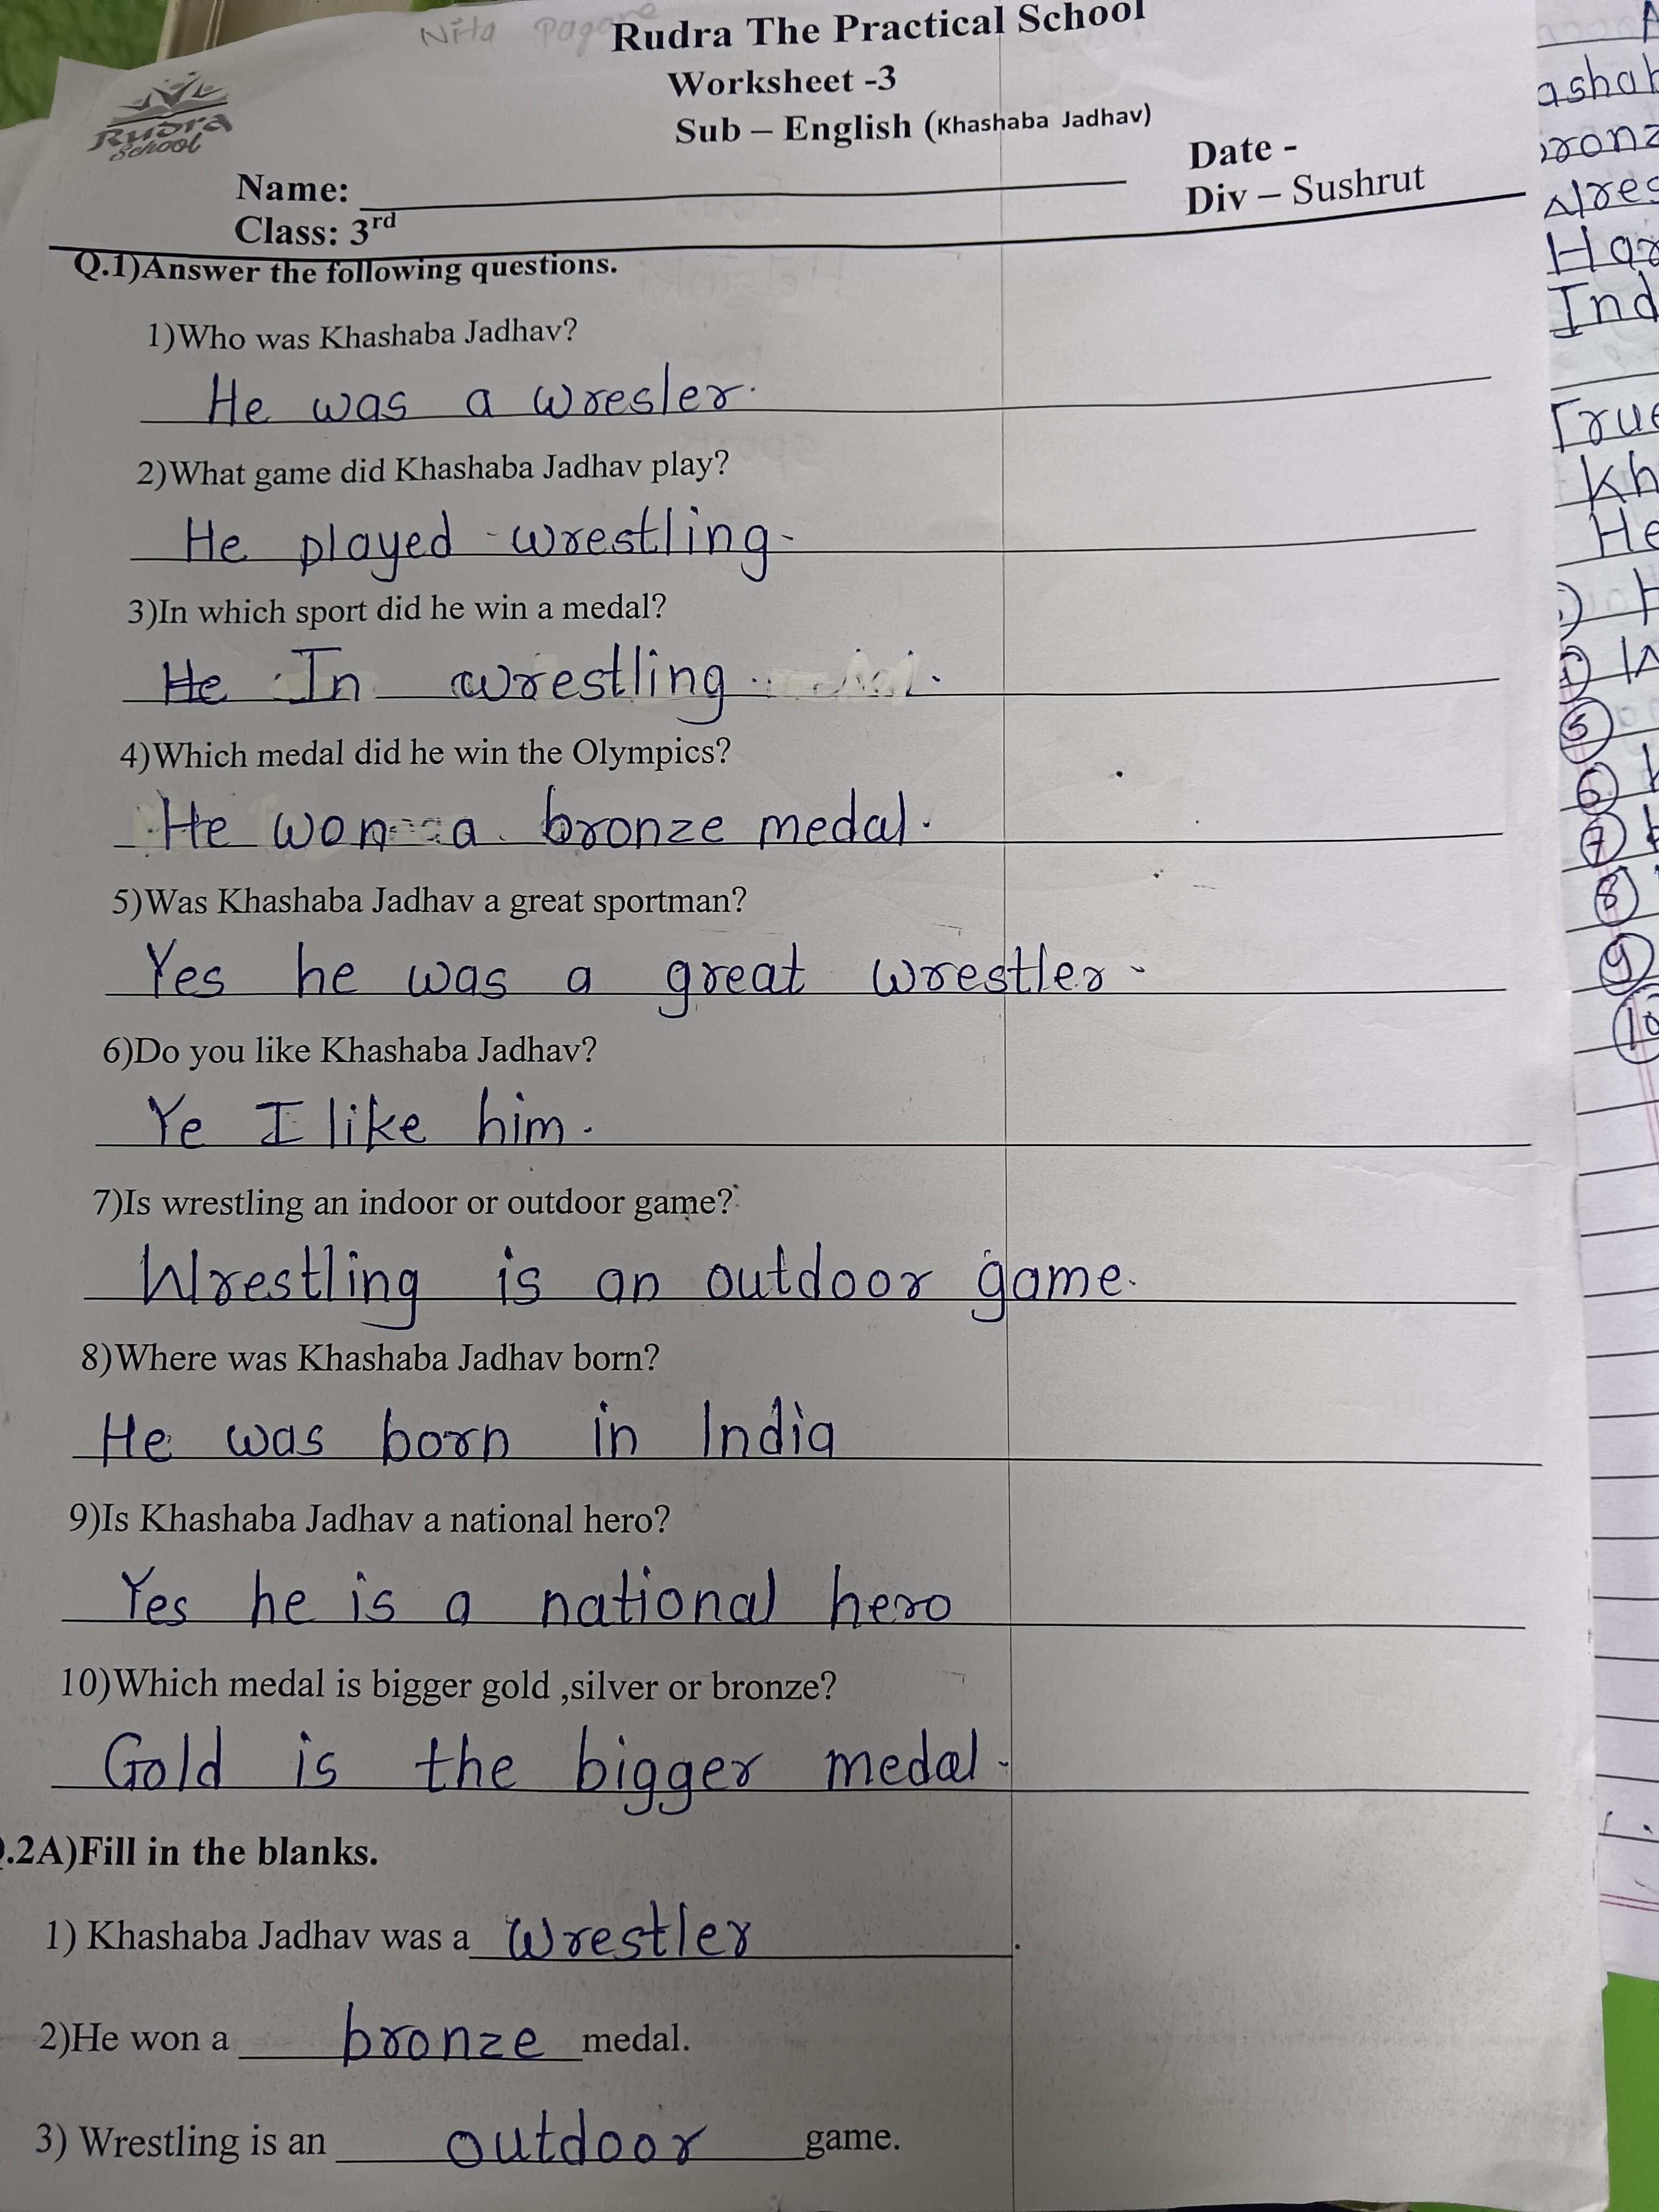 Nita
Rudra The Practical School
Worksheet -3
Sub – English (Khashaba Jadhav)
Rudra
School
Date -
Name:
Div – Sushrut
Class: 3rd
Q.1)Answer the following questions.
1)Who was Khashaba Jadhav?
He was a wresler.
2)What game did Khashaba Jadhav play?
He played wrestling.
3)In which sport did he win a medal?
He In wrestling .
4)Which medal did he win the Olympics?
He won a bronze medal.
5)Was Khashaba Jadhav a great sportman?
Yes he was a great wrestler.
6)Do you like Khashaba Jadhav?
Ye I like him.
7)Is wrestling an indoor or outdoor game?
Wrestling is an outdoor game.
8)Where was Khashaba Jadhav born?
He was born in India
9)Is Khashaba Jadhav a national hero?
Yes he is a national hero
10)Which medal is bigger gold ,silver or bronze?
Gold is the bigger medal.
.2A)Fill in the blanks.
1) Khashaba Jadhav was a wrestler.
2)He won a bronze medal.
3) Wrestling is an outdoor game.
ashab
ronz
Ind
True
Kh
He
5
6
7
8
9
10